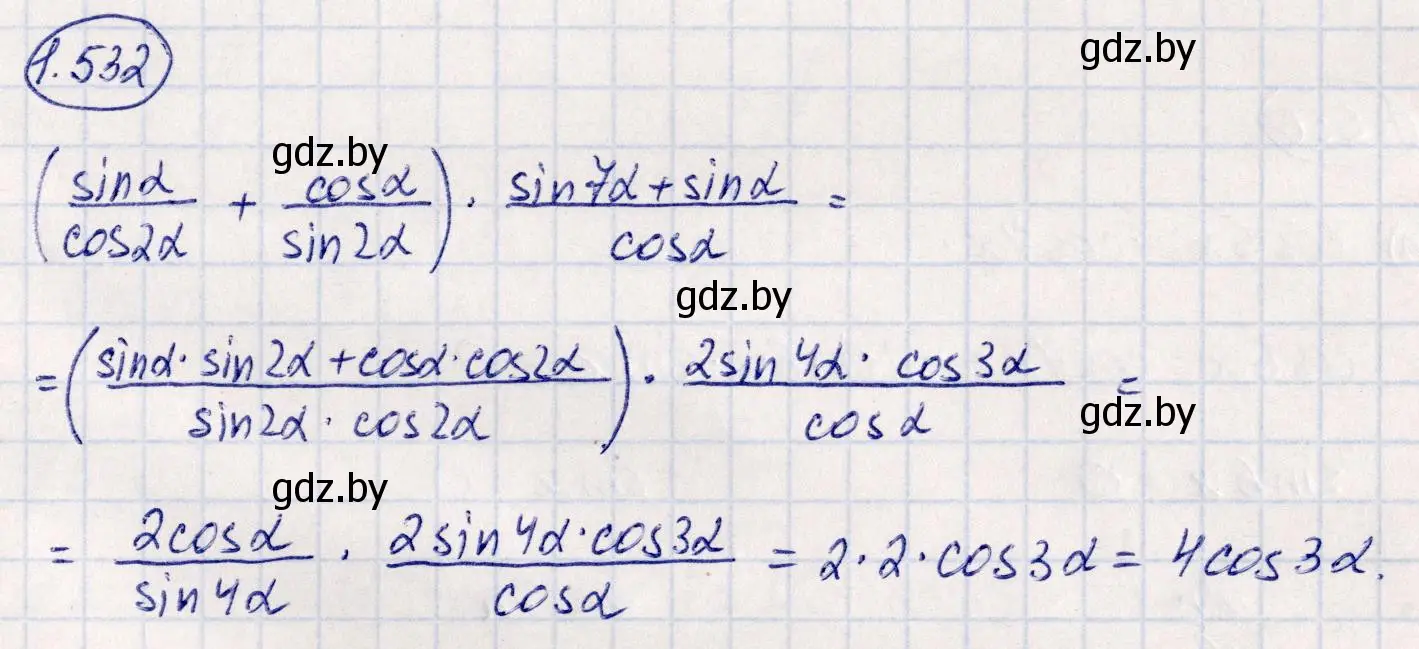 1.532
gdz.by
gdz.by
(sinα/cos2α + cosα/sin2α) · (sin7α + sinα)/cosα =
gdz.by
= ((sinα · sin2α + cosα · cos2α)/(sin2α · cos2α)) · (2sin4α · cos3α)/cosα =
gdz.by
gdz.by
= 2cosα/sin4α · (2sin4α · cos3α)/cosα = 2 · 2 · cos3α = 4cos3α.